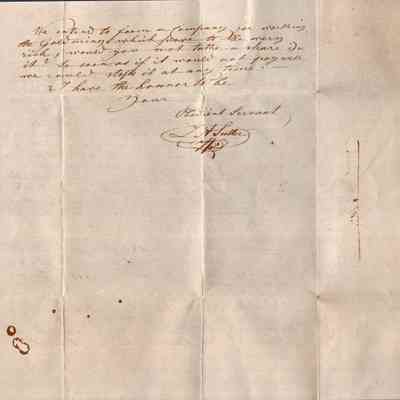 We intend to form a Company for working
the Gold mines, which prove to be very
rich, would you not take a share in
it? So soon as if it would not pay well
we could stop it at any time.
I have the honor to be
Your
Obedient Servant
J A Sutter